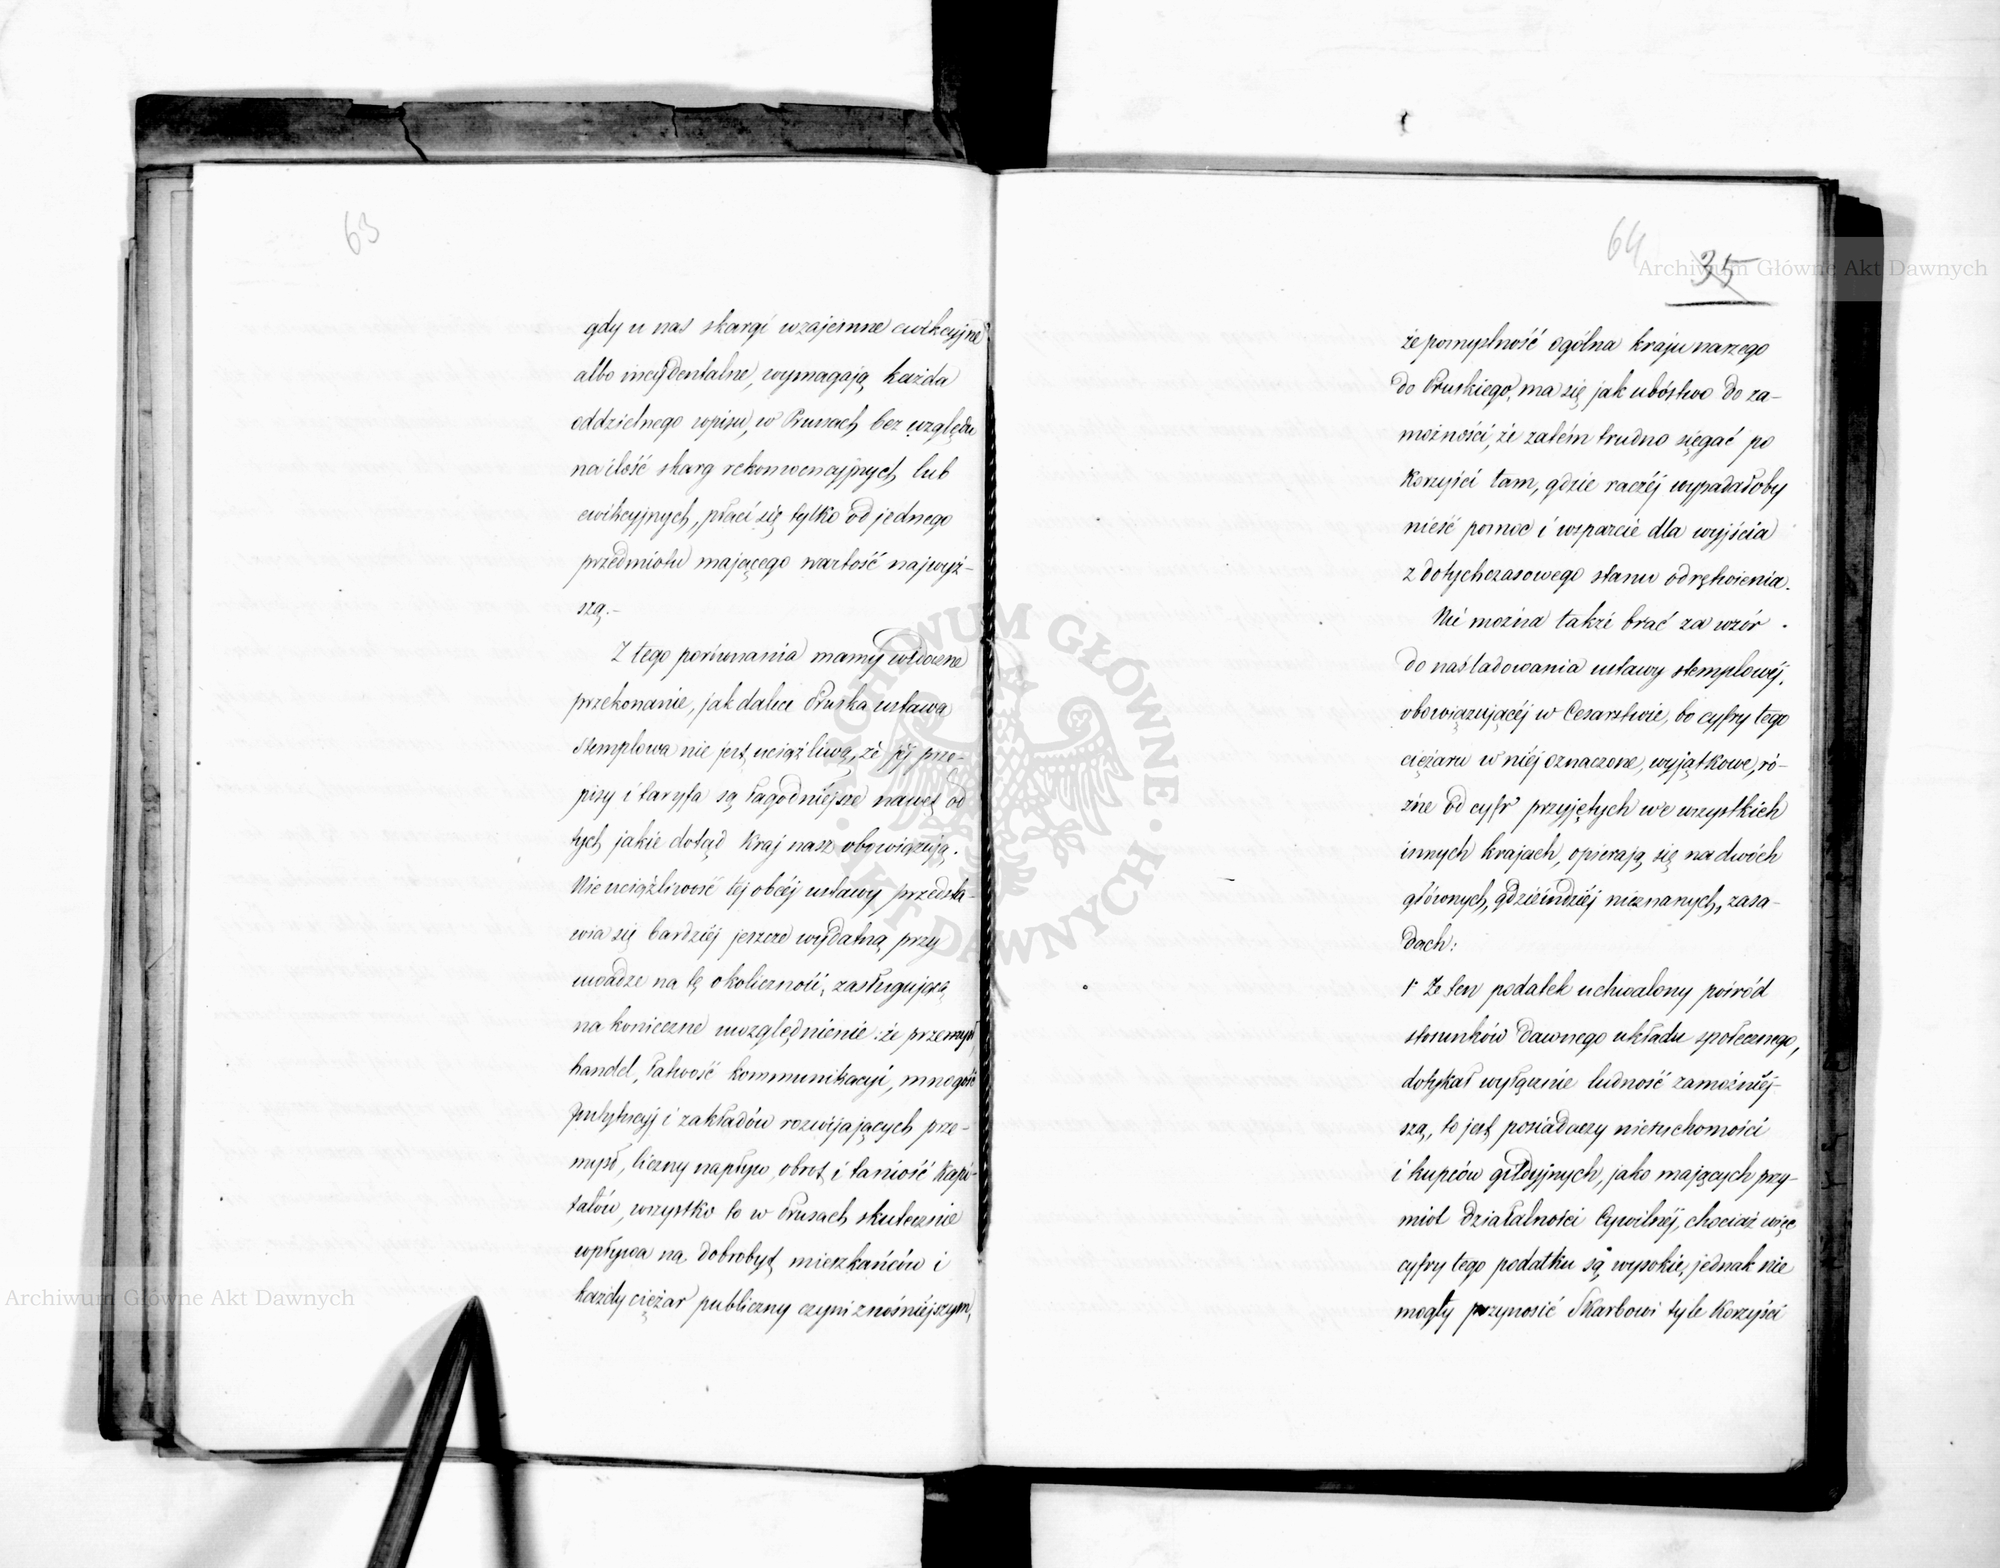 63
gdy u nas skargi wzajemne ewikcyjne
albo incydentalne, wymagają każda
oddzielnego wpisu, w Prusach bez względu
na ilość skarg rekonwencyjnych lub
ewikcyjnych, płaci się tylko od jednego
przedmiotu mającego wartość najwyż-
szą.-
Z tego porównania mamy widoczne
przekonanie, jak dalece Pruska ustawa
stemplowa nie jest uciążliwą, że jéj prze-
pisy i taryfa są łagodniejsze nawet od
tych jakie dotąd Kraj nasz obowiązują.
Nieuciążliwość tej obcéj ustawy przedsta-
wia się bardziéj jeszcze wydatną przy
uwadze na tę okoliczność, zasługującą
na konieczne uwzględnienie: że przemysł,
handel, łatwość kommunikacyi, mnogość
Instytucyj i zakładów rozwijających prze-
mysł, liczny napływ, obrot i taniość Kapi-
tałów, wszystko to w Prusach skutecznie
wpływa na dobrobyt mieszkańców i
każdy ciężar publiczny czyni znośniéjszym,
64
35
że pomyślność ogólna kraju naszego
do Pruskiego, ma się jak ubóstwo do za-
możności, że zatém trudno sięgać po
Korzyści tam, gdzie raczéj wypadałoby
nieść pomoc i wsparcie dla wyjścia
z dotychczasowego stanu odrętwienia.
Nie można także brać za wzór
do naśladowania ustawy stemplowéj,
obowiązującéj w Cesarstwie, bo cyfry tego
ciężaru w niéj oznaczone, wyjątkowe, ró-
żne od cyfr przyjętych we wszystkich
innych krajach, opierają się na dwóch
głównych, gdzieindziéj nieznanych, zasa-
dach:
1º Że ten podatek uchwalony pośród
stosunków dawnego układu społecznego,
dotykał wyłącznie ludność zamożniéj-
szą, to jest posiadaczy nieruchomości
i kupców gildyjnych, jako mających przy-
miot działalności Cywilnéj, chociaż więc
cyfry tego podatku są wysokie, jednak nie
mogły przynosić Skarbowi tyle Korzyści
Archiwum Główne Akt Dawnych
Archiwum Główne Akt Dawnych
ARCHIWUM GŁÓWNE · AKT DAWNYCH ·